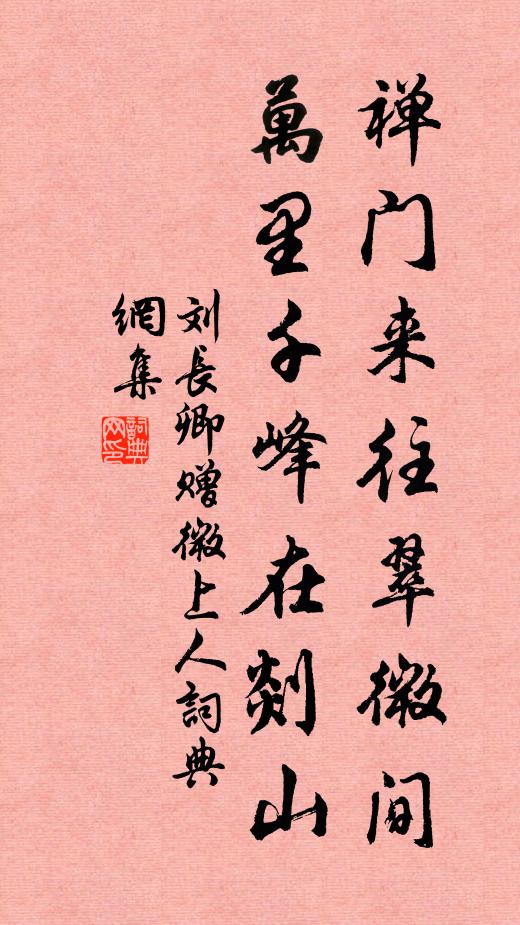 禅门来往翠微间
萬里千峰在剡山
刘長卿赠微上人詞典
網集
詞典
网印